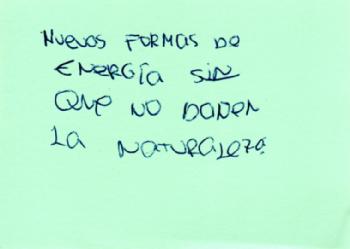 NUEVOS FORMAS DE
ENERGÍA SIN
QUE NO DAÑEN
LA NATURALEZA